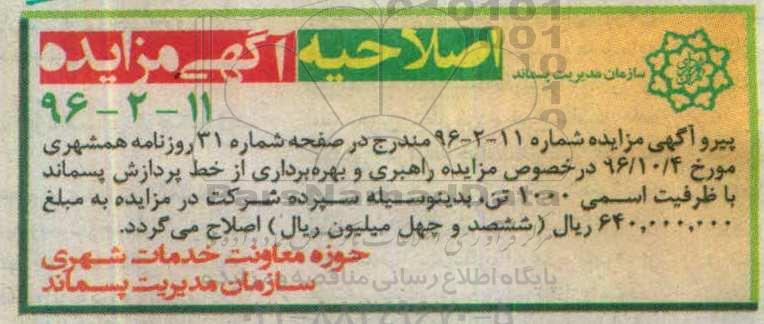 سازمان مدیریت پسماند
اصلاحیه آگهی مزایده
۹۶-۲-۱۱
پیرو آگهی مزایده شماره ۱۱-۲-۹۶ مندرج در صفحه شماره ۳۱ روزنامه همشهری
مورخ ۹۶/۱۰/۴ درخصوص مزایده راهبری و بهره‌برداری از خط پردازش پسماند
با ظرفیت اسمی ۱۰۰۰ تن، بدینوسیله سپرده شرکت در مزایده به مبلغ
۶۴۰,۰۰۰,۰۰۰ ریال (ششصد و چهل میلیون ریال) اصلاح می‌گردد.
حوزه معاونت خدمات شهری
سازمان مدیریت پسماند
ParsNamadData
پایگاه اطلاع رسانی مناقصه